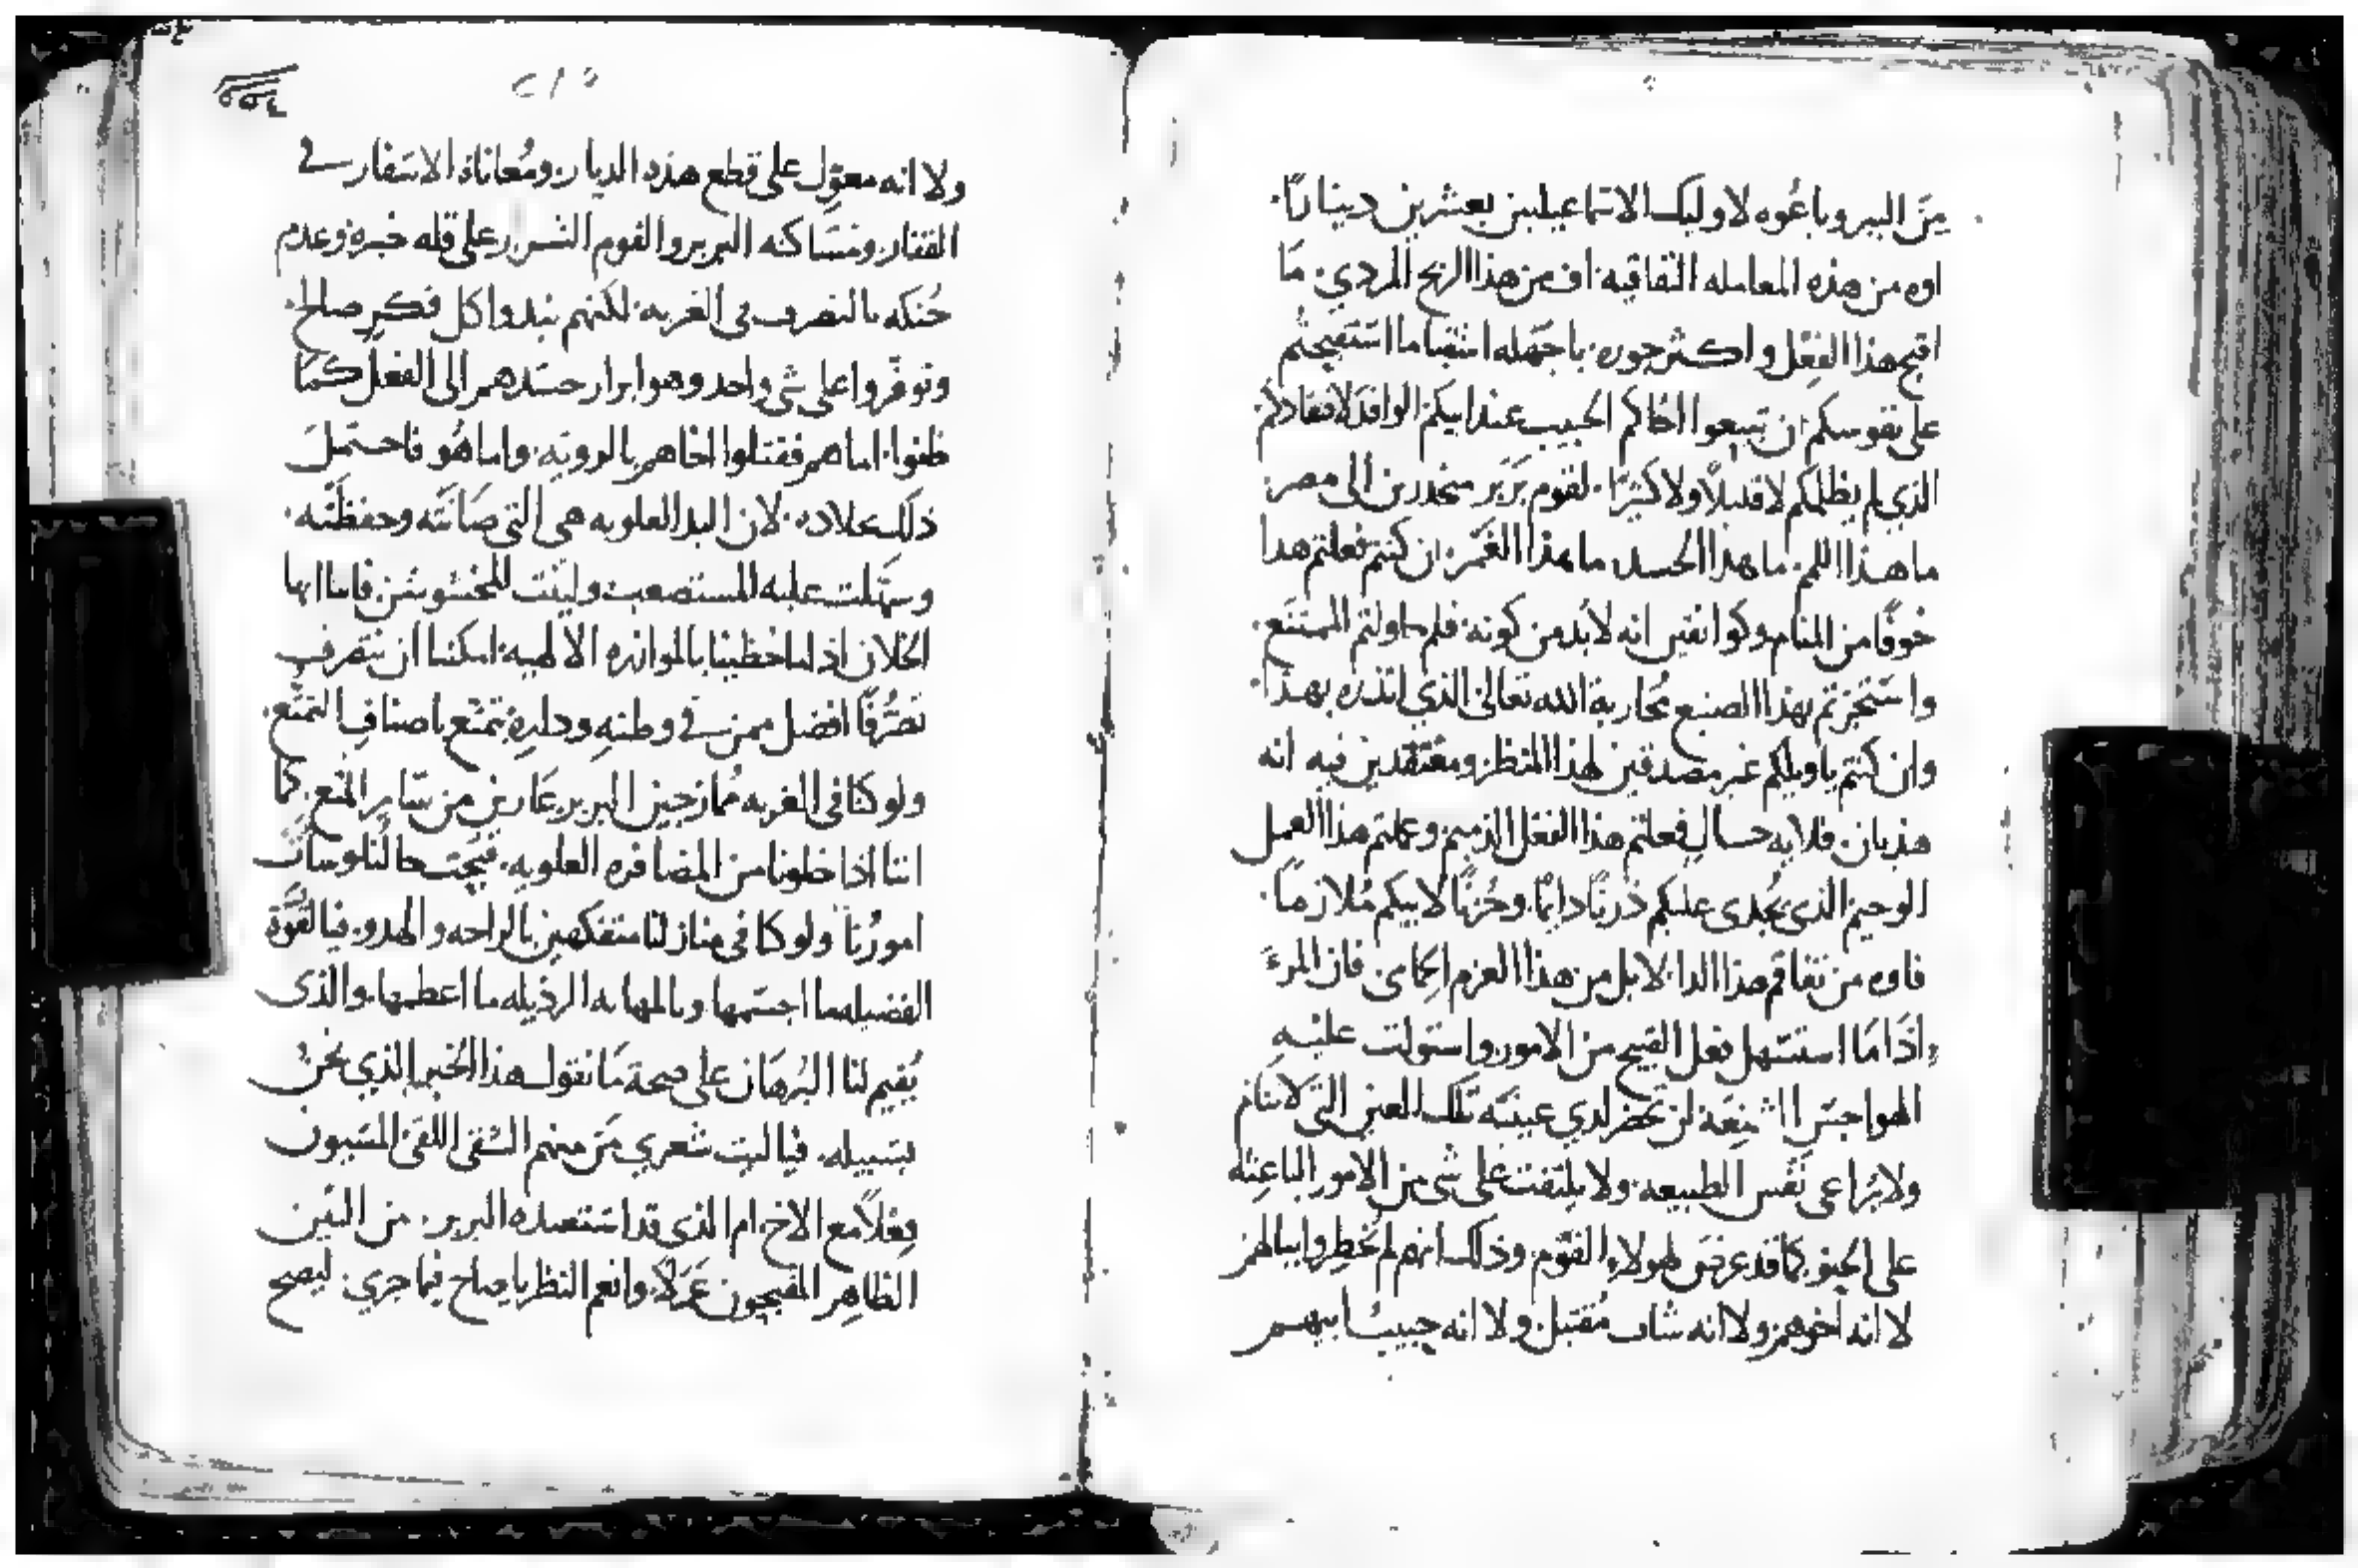 مِنَ البير وباعُوه لاوليك الاسماعيليين بعشرين دينارًا.
اوه من هذه المعامله النفاقيه اف من هذا الربح المردي. مَا
اقبح هذا الفِعْل واكثر جوره. يا جَهَله اشقيا ما استَقبحتُم
على نفوسكم ان تبيعوا اخاكم الحبيب عند ابيكم الوافد لافتقادكم
الذي لم يظلمكم لا قليلاً ولا كثيرًا. لقوم بَربَر منحدرين الى مصر.
ما هذا اللم. ما هذا الحسد. ما هذا الغَمر. ان كنتم فعلتم هذا
خوفًا من المنام وكوا نقين انه لابد من كونه. فلم حاولتم الممتنع.
واستَجزتم بهذا الصنيع مُحاربة الله تعالى الذي انذره بهذا.
وان كنتم يا ويلكم غير مصدقين لهذا المنظر ومعتقدين فيه انه
هذيان. فلايه حسالٍ فعلتم هذا الفعل الذميم وعملتم هذا العمل
الوحيم الذي يجدى عليكم ذرنًا دايمًا. وحُزنًا لابيكم مُلازمًا.
فاوه من تفاقم هذا الدا. لا بل من هذا العزم احماى. فان المرءَ
اذَا مَا استسهل فعل القبيح من الامور. واستولت عليه
الهواجس الشنِعَة لن تحضر لدي عينيه تلك العين التي لا تنام
ولا يُراعى نَفْس الطبيعه. ولا يلتفت على شى من الامور الباعِثه
على الحنو. كما قد عرض لهولاء القَوم. وذلك انهم لم يُخطِروا ببالهم
لا انه اخوهم ولا انه شاب مُقتبل. ولا انه حبيبُ ابيهم
٢١٥
ولا انه معوّل على قطع هذه الديار. ومُعاناة الاسفار في
القفار. ومَساكنه البربر والقوم الشرر على قله خبره. وعدم
حُنكه بالتصرف فى الغربه. لكنهم نبدوا كل فكرٍ صالح.
وتوفّروا على شى واحد وهو ابرار حسَدهم الى الفعل كمَا
ظنوا. اما هم فقتلوا اخاهم بالرويه. واما هُو فاحتملَ
ذلك بجلاده. لان اليد العلويه هي التي صَانتَه وحفظَتَه.
وسهّلت عليه المستصعب وليّنت المخشوشن فاننا ايها
الخلان اذا ما حظينا بالموازره الالهيه. امكننا ان نتصرف
تصَرُّفًا افضل ممن في وطنهِ ودارهِ تمتّع باصنافِ التمتّع.
ولو كنا فى الغربه مُمازجين البربر عَارين من سَايرِ المتع. كما
اننا اذا خلونا من المضافره العلويه. قبُحت حالُنا وسات
امورُنا ولو كنا فى منازلنا متفكهين بالراحه والهدو. فيا لقُوّة
الفضيله ما اجسَمها وبالمهانه الرذيله ما اعظمها. والذى
يُقيم لنا البُرهان على صحة مَا نقول هذا الخبر الذي نحنُ
بسَبيله. فيا ليت شعري مَن منهم الشقى اللقى المسَبيون
فِعْلاً مع الاخ ام الذى قد استعبده البربر. من البيّن
الظاهِر المقبحون عَمَلاً. وانعم النظر يا صاح فيما جري. ليصح